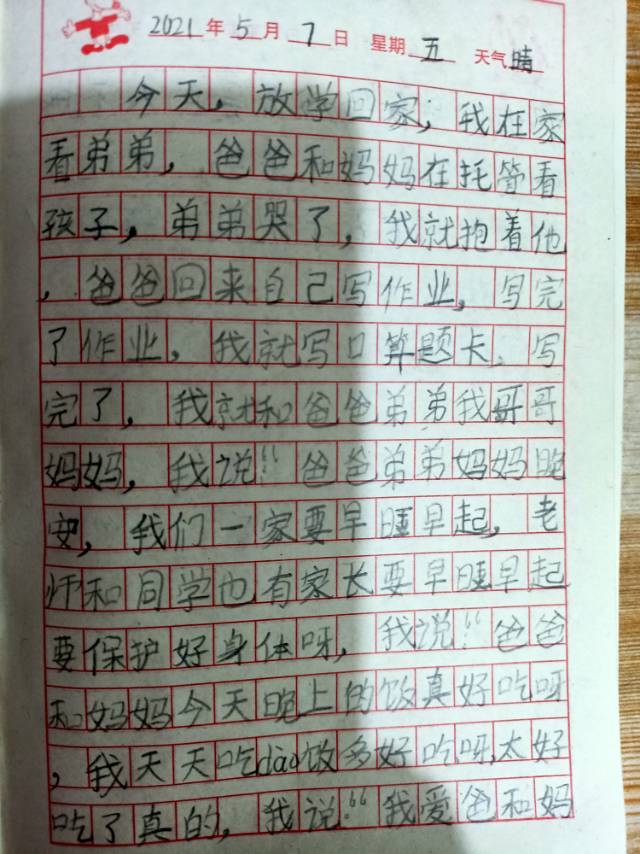 2021年5月7日 星期五 天气晴
今天，放学回家，我在家
看弟弟，爸爸和妈妈在托管看
孩子，弟弟哭了，我就抱着他
，爸爸回来自己写作业，写完
了作业，我就写口算题卡、写
完了，我就和爸爸弟弟我哥哥
妈妈，我说“爸爸弟弟妈妈晚
安，我们一家要早睡早起，老
师和同学也有家长要早睡早起
要保护好身体呀，我说“爸爸
和妈妈今天晚上的饭真好吃呀
，我天天吃dào饭多好吃呀，太好
吃了真的，我说“我爱爸和妈